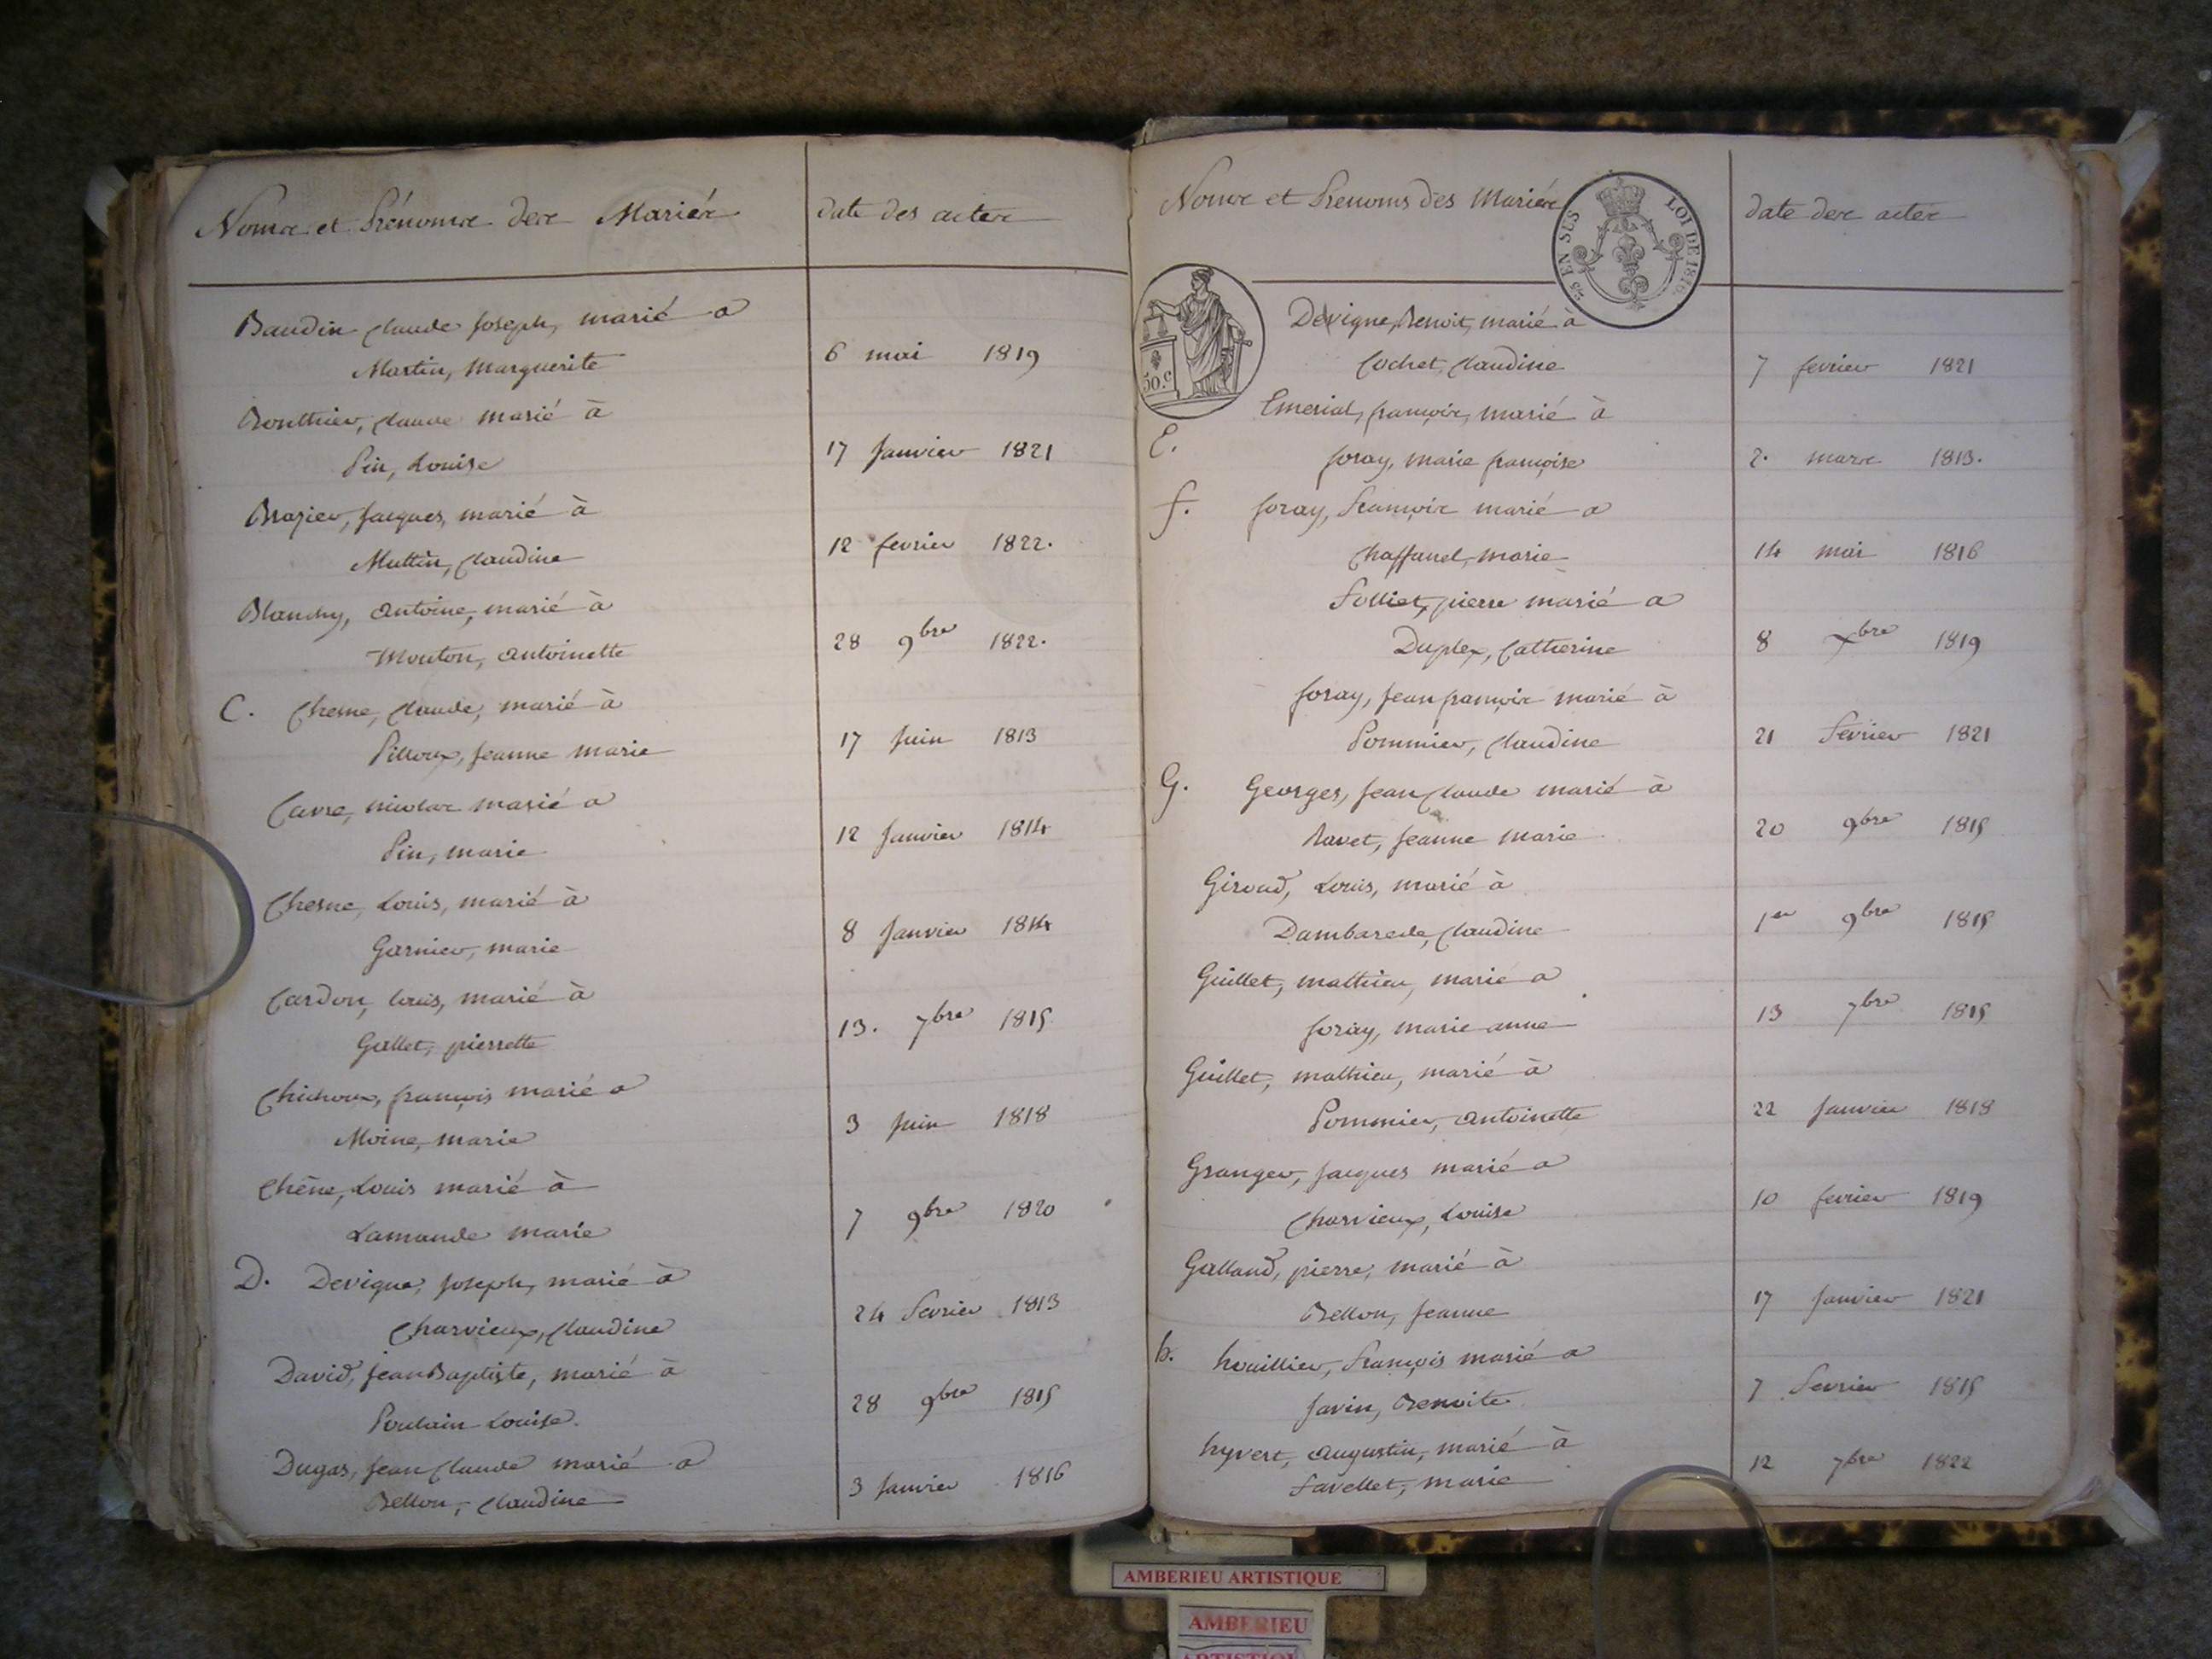 Noms et Prénoms des Mariés
date des actes
Baudin Claude Joseph, marié a
Martin, Marguerite
6 mai 1819
Bonthier, Claude marié à
Pin, Louise
17 Janvier 1821
Brazier, Jacques, marié à
Muttin, Claudine
12 fevrier 1822.
Blanchy, antoine, marié à
Mouton, antoinette
28 9bre 1822.
C. Chesne, Claude, marié à
Pilloux, Jeanne marie
17 Juin 1813
Carre, nicolas marié a
Pin, marie
12 Janvier 1814
Chesne, Louis, marié à
Garnier, marie
8 Janvier 1814
Cardon, louis, marié à
Gallet, pierrette
13. 7bre 1815
Chichoux, françois marié a
Moine, marie
3 Juin 1818
Chêne, Louis marié à
Lamande marie
7 9bre 1820
D. Devigne, Joseph, marié à
Charvieux, Claudine
24 Fevrier 1813
David, Jean Baptiste, marié à
Poulain Louise.
28 9bre 1815
Dugas, Jean Claude marié a
Bellon, Claudine
3 Janvier 1816
Noms et Prenoms des Mariés
date des actes
EN SUS
LOI DE 1816.
50.c
Devigne, Benoit, marié à
Cochet, Claudine
7 fevrier 1821
Emerial, françois, marié à
E.
foray, marie françoise
2. mars 1813.
f. foray, François marié a
Chaffanel, marie
14 mai 1816
Folliet, pierre marié a
Duplex, Catherine
8 Xbre 1819
foray, Jean françois marié à
Pommier, Claudine
21 Fevrier 1821
G. Georges, Jean Claude marié à
Ravet, Jeanne marie
20 9bre 1815
Giroud, Louis, marié à
Dambarede, Claudine
1er 9bre 1815
Guillet, mathieu, marié a
foray, marie anne
13 7bre 1815
Guillet, mathieu, marié à
Pommier, antoinette
22 Janvier 1818
Granger, Jacques marié a
Charvieux, Louise
10 fevrier 1819
Galland, pierre, marié à
Bellon, Jeanne
17 Janvier 1821
h. houillier, François marié a
Javin, Benoite
7 Fevrier 1815
hyvert, augustin, marié à
Favellet, marie
12 7bre 1822
AMBERIEU ARTISTIQUE
AMBERIEU
ARTISTIQUE